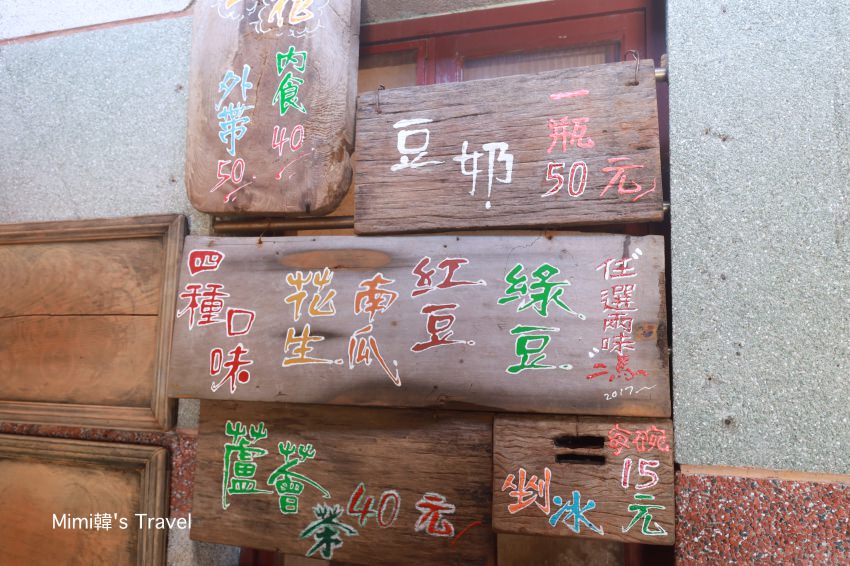 內食40
外帶50
豆奶 一瓶50元
四種口味
花生
南瓜
紅豆
綠豆
任選兩味
2017
蘆薈茶40元
剉冰 每碗15元
Mimi韓's Travel